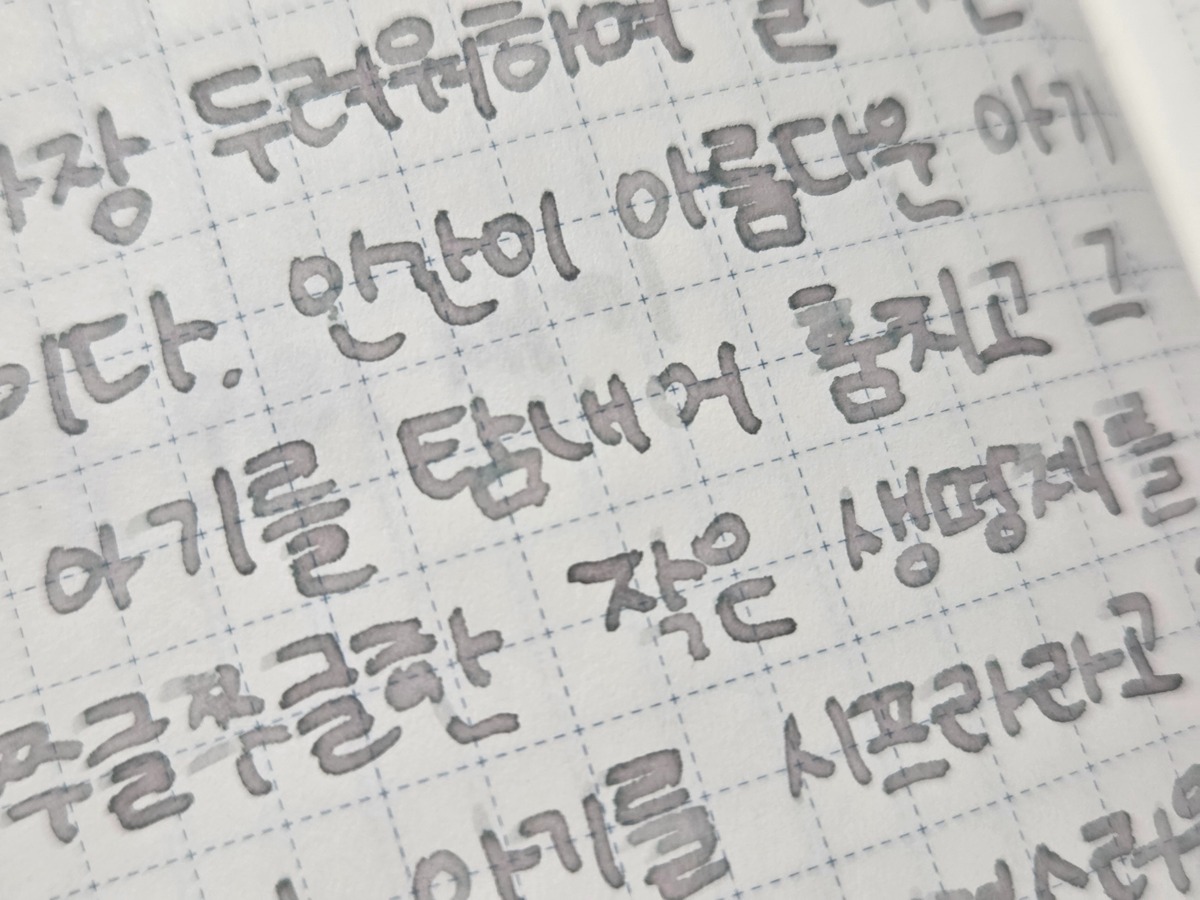 가장 두려워하며
이다. 인간이 아름다운 아기
아기를 탐내어 훔치고 그
쭈글쭈글한 작은 생명체를
아기를 시프라라고